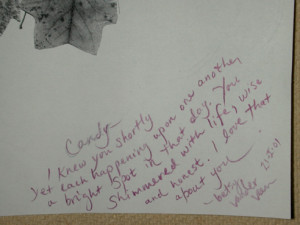 Candy-
I knew you shortly
yet each happening upon one another
a bright spot in that day. You
shimmered with life, wise
and honest. I love that
about you.